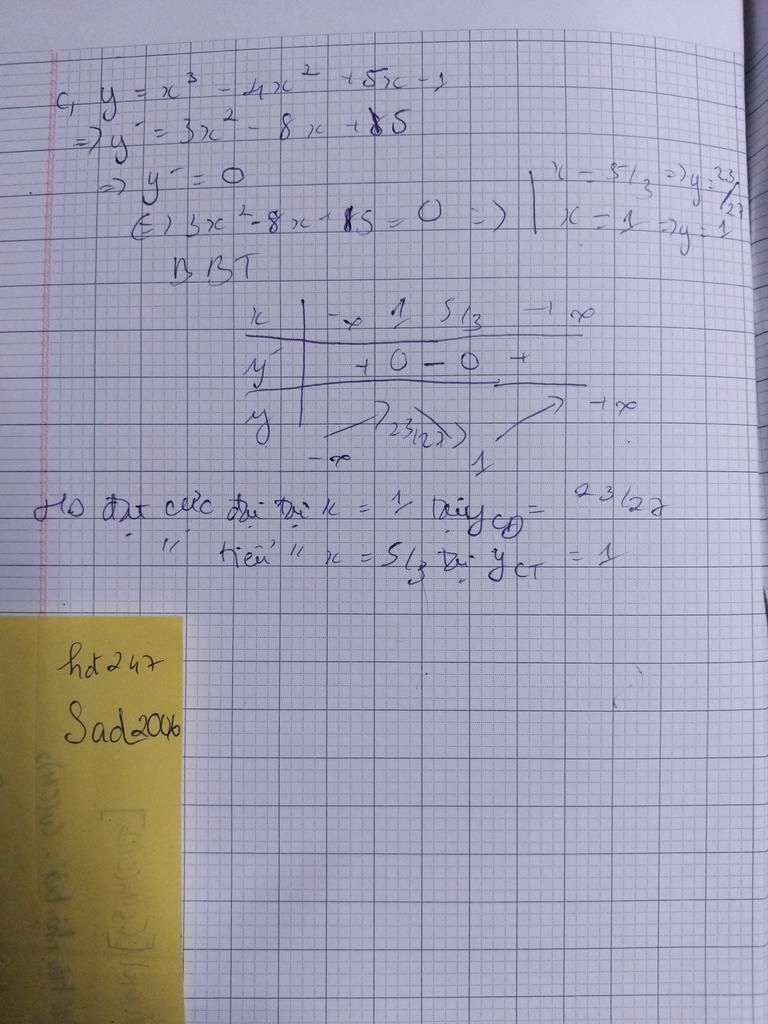 c, y = x³ - 4x² + 5x - 1
=> y' = 3x² - 8x + 5
=> y' = 0
(=) 3x² - 8x + 5 = 0 => | x = 5/3 => y = 23/27
x = 1 => y = 1
BBT
x | -∞ 1 5/3 +∞
y' | + 0 - 0 +
y | -∞ 23/27 1 +∞
HS đạt cực đại tại x = 1 tại yCĐ = 23/27
" tiểu " x = 5/3 tại yCT = 1
hot247
Sad2006